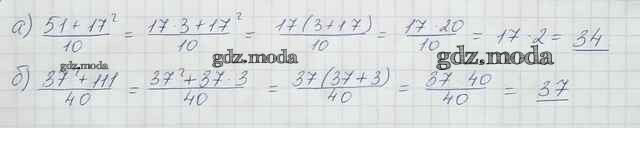 а) (51 + 17²)/10 = (17 · 3 + 17²)/10 = 17(3 + 17)/10 = (17 · 20)/10 = 17 · 2 = 34
gdz.moda gdz.moda gdz.moda
б) (37² + 111)/40 = (37² + 37 · 3)/40 = 37(37 + 3)/40 = (37 40)/40 = 37